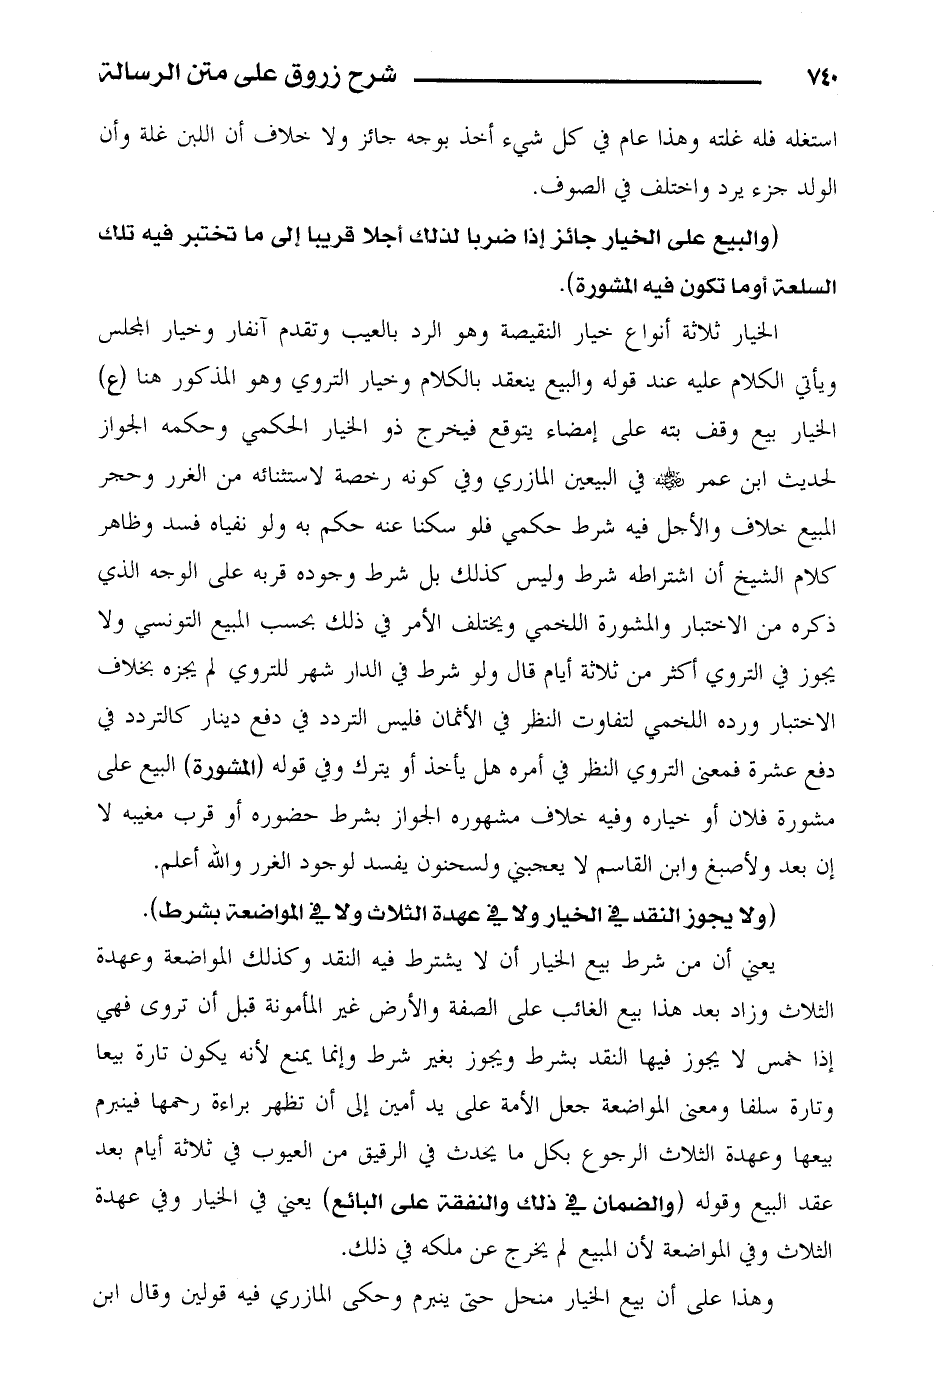 ٧٤٠ شرح زروق على متن الرسالة
استغله فله غلته وهذا عام في كل شيء أخذ بوجه جائز ولا خلاف أن اللبن غلة وأن
الولد جزء يرد واختلف في الصوف.
(والبيع على الخيار جائز إذا ضربا لذلك أجلا قريبا إلى ما تختبر فيه تلك
السلعة أوما تكون فيه المشورة).
الخيار ثلاثة أنواع خيار النقيصة وهو الرد بالعيب وتقدم آنفار وخيار المجلس
ويأتي الكلام عليه عند قوله والبيع ينعقد بالكلام وخيار التروي وهو المذكور هنا (ع)
الخيار بيع وقف بته على إمضاء يتوقع فيخرج ذو الخيار الحكمي وحكمه الجواز
لحديث ابن عمر ﷺ في البيعين المازري وفي كونه رخصة لاستثنائه من الغرر وحجر
المبيع خلاف والأجل فيه شرط حكمي فلو سكنا عنه حكم به ولو نفياه فسد وظاهر
كلام الشيخ أن اشتراطه شرط وليس كذلك بل شرط وجوده قربه على الوجه الذي
ذكره من الاختبار والمشورة اللخمي ويختلف الأمر في ذلك بحسب المبيع التونسي ولا
يجوز في التروي أكثر من ثلاثة أيام قال ولو شرط في الدار شهر للتروي لم يجزه بخلاف
الاختبار ورده اللخمي لتفاوت النظر في الأثمان فليس التردد في دفع دينار كالتردد في
دفع عشرة فمعنى التروي النظر في أمره هل يأخذ أو يترك وفي قوله (المشورة) البيع على
مشورة فلان أو خياره وفيه خلاف مشهوره الجواز بشرط حضوره أو قرب مغيبه لا
إن بعد ولأصبغ وابن القاسم لا يعجبني ولسحنون يفسد لوجود الغرر والله أعلم.
(ولا يجوز النقد في الخيار ولا في عهدة الثلاث ولا في المواضعة بشرط).
يعني أن من شرط بيع الخيار أن لا يشترط فيه النقد وكذلك المواضعة وعهدة
الثلاث وزاد بعد هذا بيع الغائب على الصفة والأرض غير المأمونة قبل أن تروى فهي
إذا خمس لا يجوز فيها النقد بشرط ويجوز بغير شرط وإنما يمنع لأنه يكون تارة بيعا
وتارة سلفا ومعنى المواضعة جعل الأمة على يد أمين إلى أن تظهر براءة رحمها فينبرم
بيعها وعهدة الثلاث الرجوع بكل ما يحدث في الرقيق من العيوب في ثلاثة أيام بعد
عقد البيع وقوله (والضمان في ذلك والنفقة على البائع) يعني في الخيار وفي عهدة
الثلاث وفي المواضعة لأن المبيع لم يخرج عن ملكه في ذلك.
وهذا على أن بيع الخيار منحل حتى ينبرم وحكى المازري فيه قولين وقال ابن